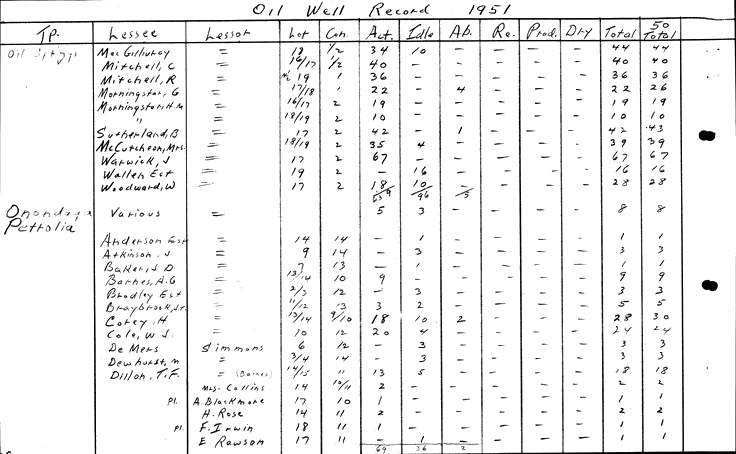 Oil Well Record 1951
TP. Lessee Lessor Lot Con. Act. Idle Ab. Re. Prod. Dry Total 50 Total
Oil Springs MacGillivray = 18 1/2 34 10 — — — — 44 44
Mitchell, C = 16/17 1/2 40 — — — — — 40 40
Mitchell, R = N½ 19 1 36 — — — — — 36 36
Morningstar, G = 17/18 1 22 — 4 — — — 22 26
Morningstar, H.M = 16/17 2 19 — — — — — 19 19
" = 18/19 2 10 — — — — — 10 10
Sutherland, B = 17 2 42 — 1 — — — 42 43
McCutcheon, Mrs. = 18/19 2 35 4 — — — — 39 39
Warwick, J = 17 2 67 — — — — — 67 67
Wallen Est = 19 2 — 16 — — — — 16 16
Woodward, W = 17 2 18 10 — — — — 28 28
96 5
Onondaga Various = 5 3 — — — — 8 8
Petrolia
Anderson Est = 14 14 — 1 — — — — 1 1
Atkinson, J = 9 14 — 3 — — — — 3 3
Baker, J D = 7 13 — 1 — — — — 1 1
Barnes, A.G = 13/14 10 9 — — — — — 9 9
Bradley Est = 2/3 12 — 3 — — — — 3 3
Braybrook, Jr. = 11/12 13 3 2 — — — — 5 5
Corey, H = 13/14 9/10 18 10 2 — — — 28 30
Cole, W J. = 10 12 20 4 — — — — 24 24
De Mers Simmons 6 12 — 3 — — — — 3 3
Dewhurst, M = 3/4 14 — 3 — — — — 3 3
Dillon, T.F. = (Barnes) 14/15 11 13 5 — — — — 18 18
Mrs. Collins 14 10/11 2 — — — — — 2 2
Pl. A. Blackmore 17 10 1 — — — — — 1 1
H. Rose 14 11 2 — — — — — 2 2
Pl. F. Irwin 18 11 1 — — — — — 1 1
E Rawson 17 11 — 1 — — — — 1 1
69 36 2